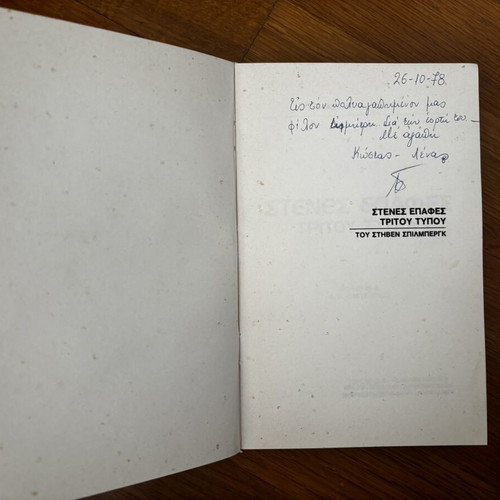 26-10-78
Εἰς τόν πολυαγαπημένον μας
φίλον Δημήτρη διά τήν ἑορτή του
Μέ ἀγάπη
Κώστας - Λένα
ΣΤΕΝΕΣ ΕΠΑΦΕΣ
ΤΡΙΤΟΥ ΤΥΠΟΥ
ΤΟΥ ΣΤΗΒΕΝ ΣΠΙΛΜΠΕΡΓΚ